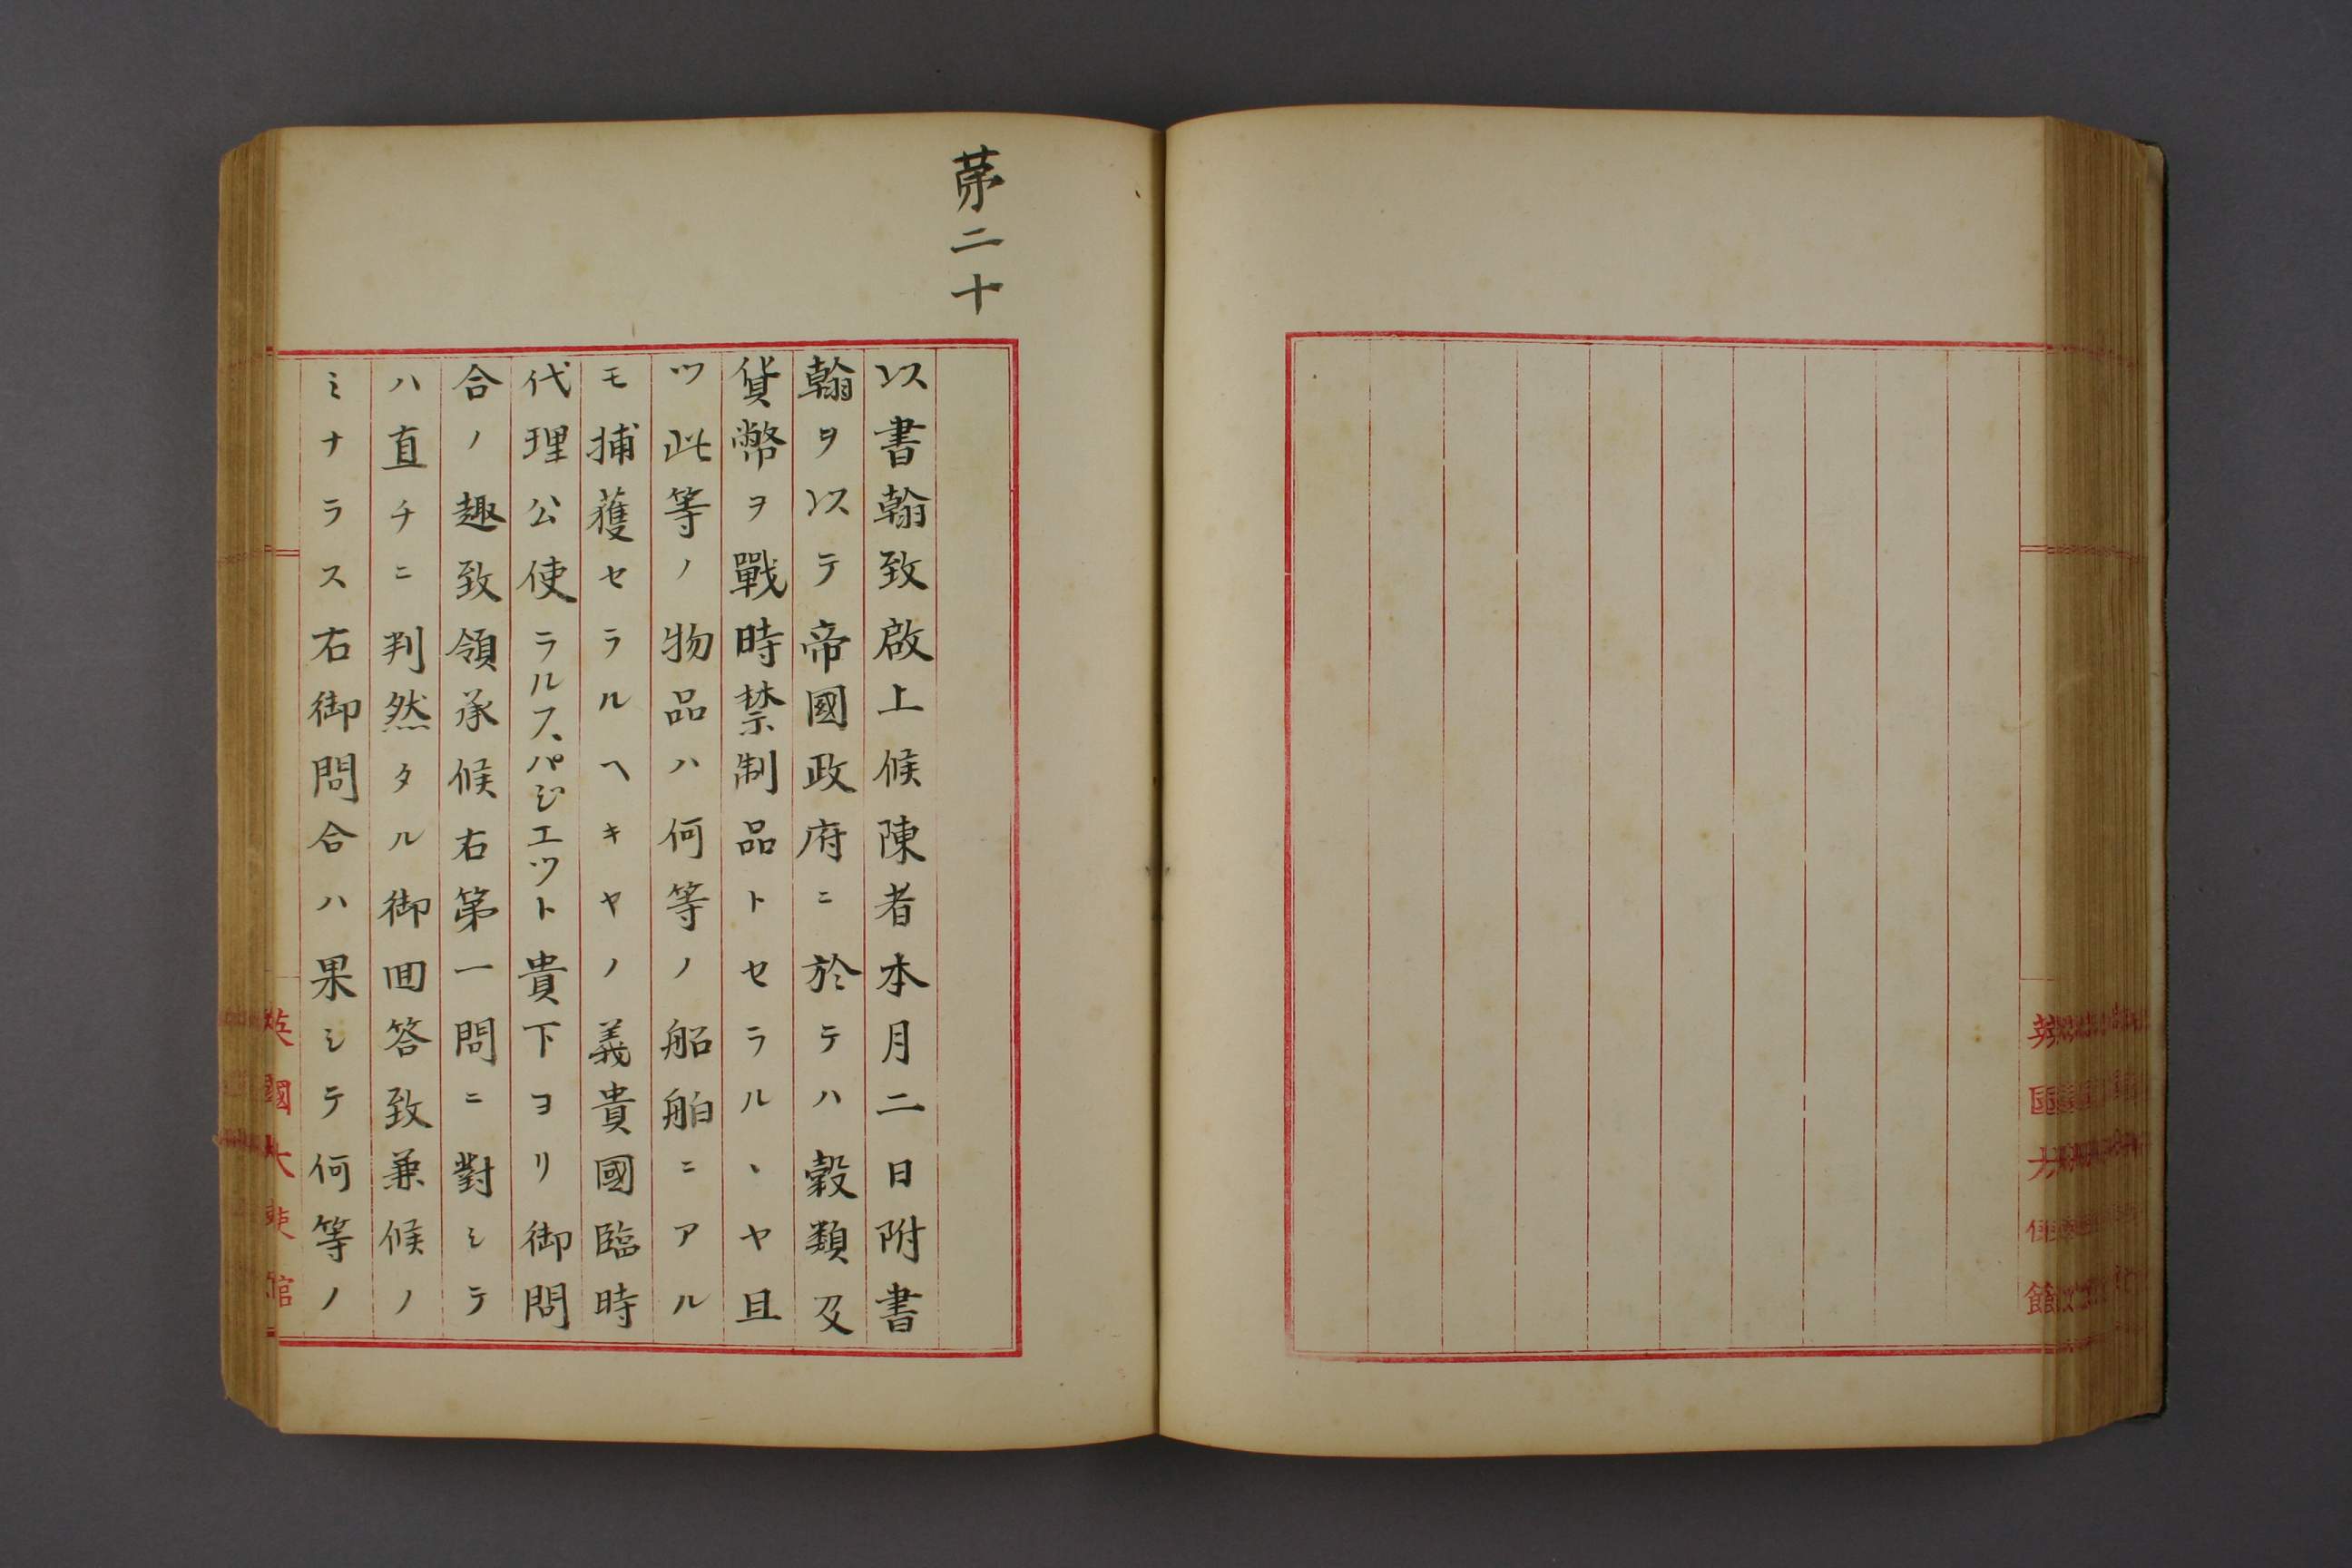 英國大使館
第二十
以書翰致啟上候陳者本月二日附書
翰ヲ以テ帝國政府ニ於テハ穀類及
貨幣ヲ戰時禁制品トセラルヽヤ且
ツ此等ノ物品ハ何等ノ船舶ニアル
モ捕獲セラルヘキヤノ義貴國臨時
代理公使ラルフ、パジエツト貴下ヨリ御問
合ノ趣致領承候右第一問ニ對シテ
ハ直チニ判然タル御回答致兼候ノ
ミナラス右御問合ハ果シテ何等ノ
英國大使館